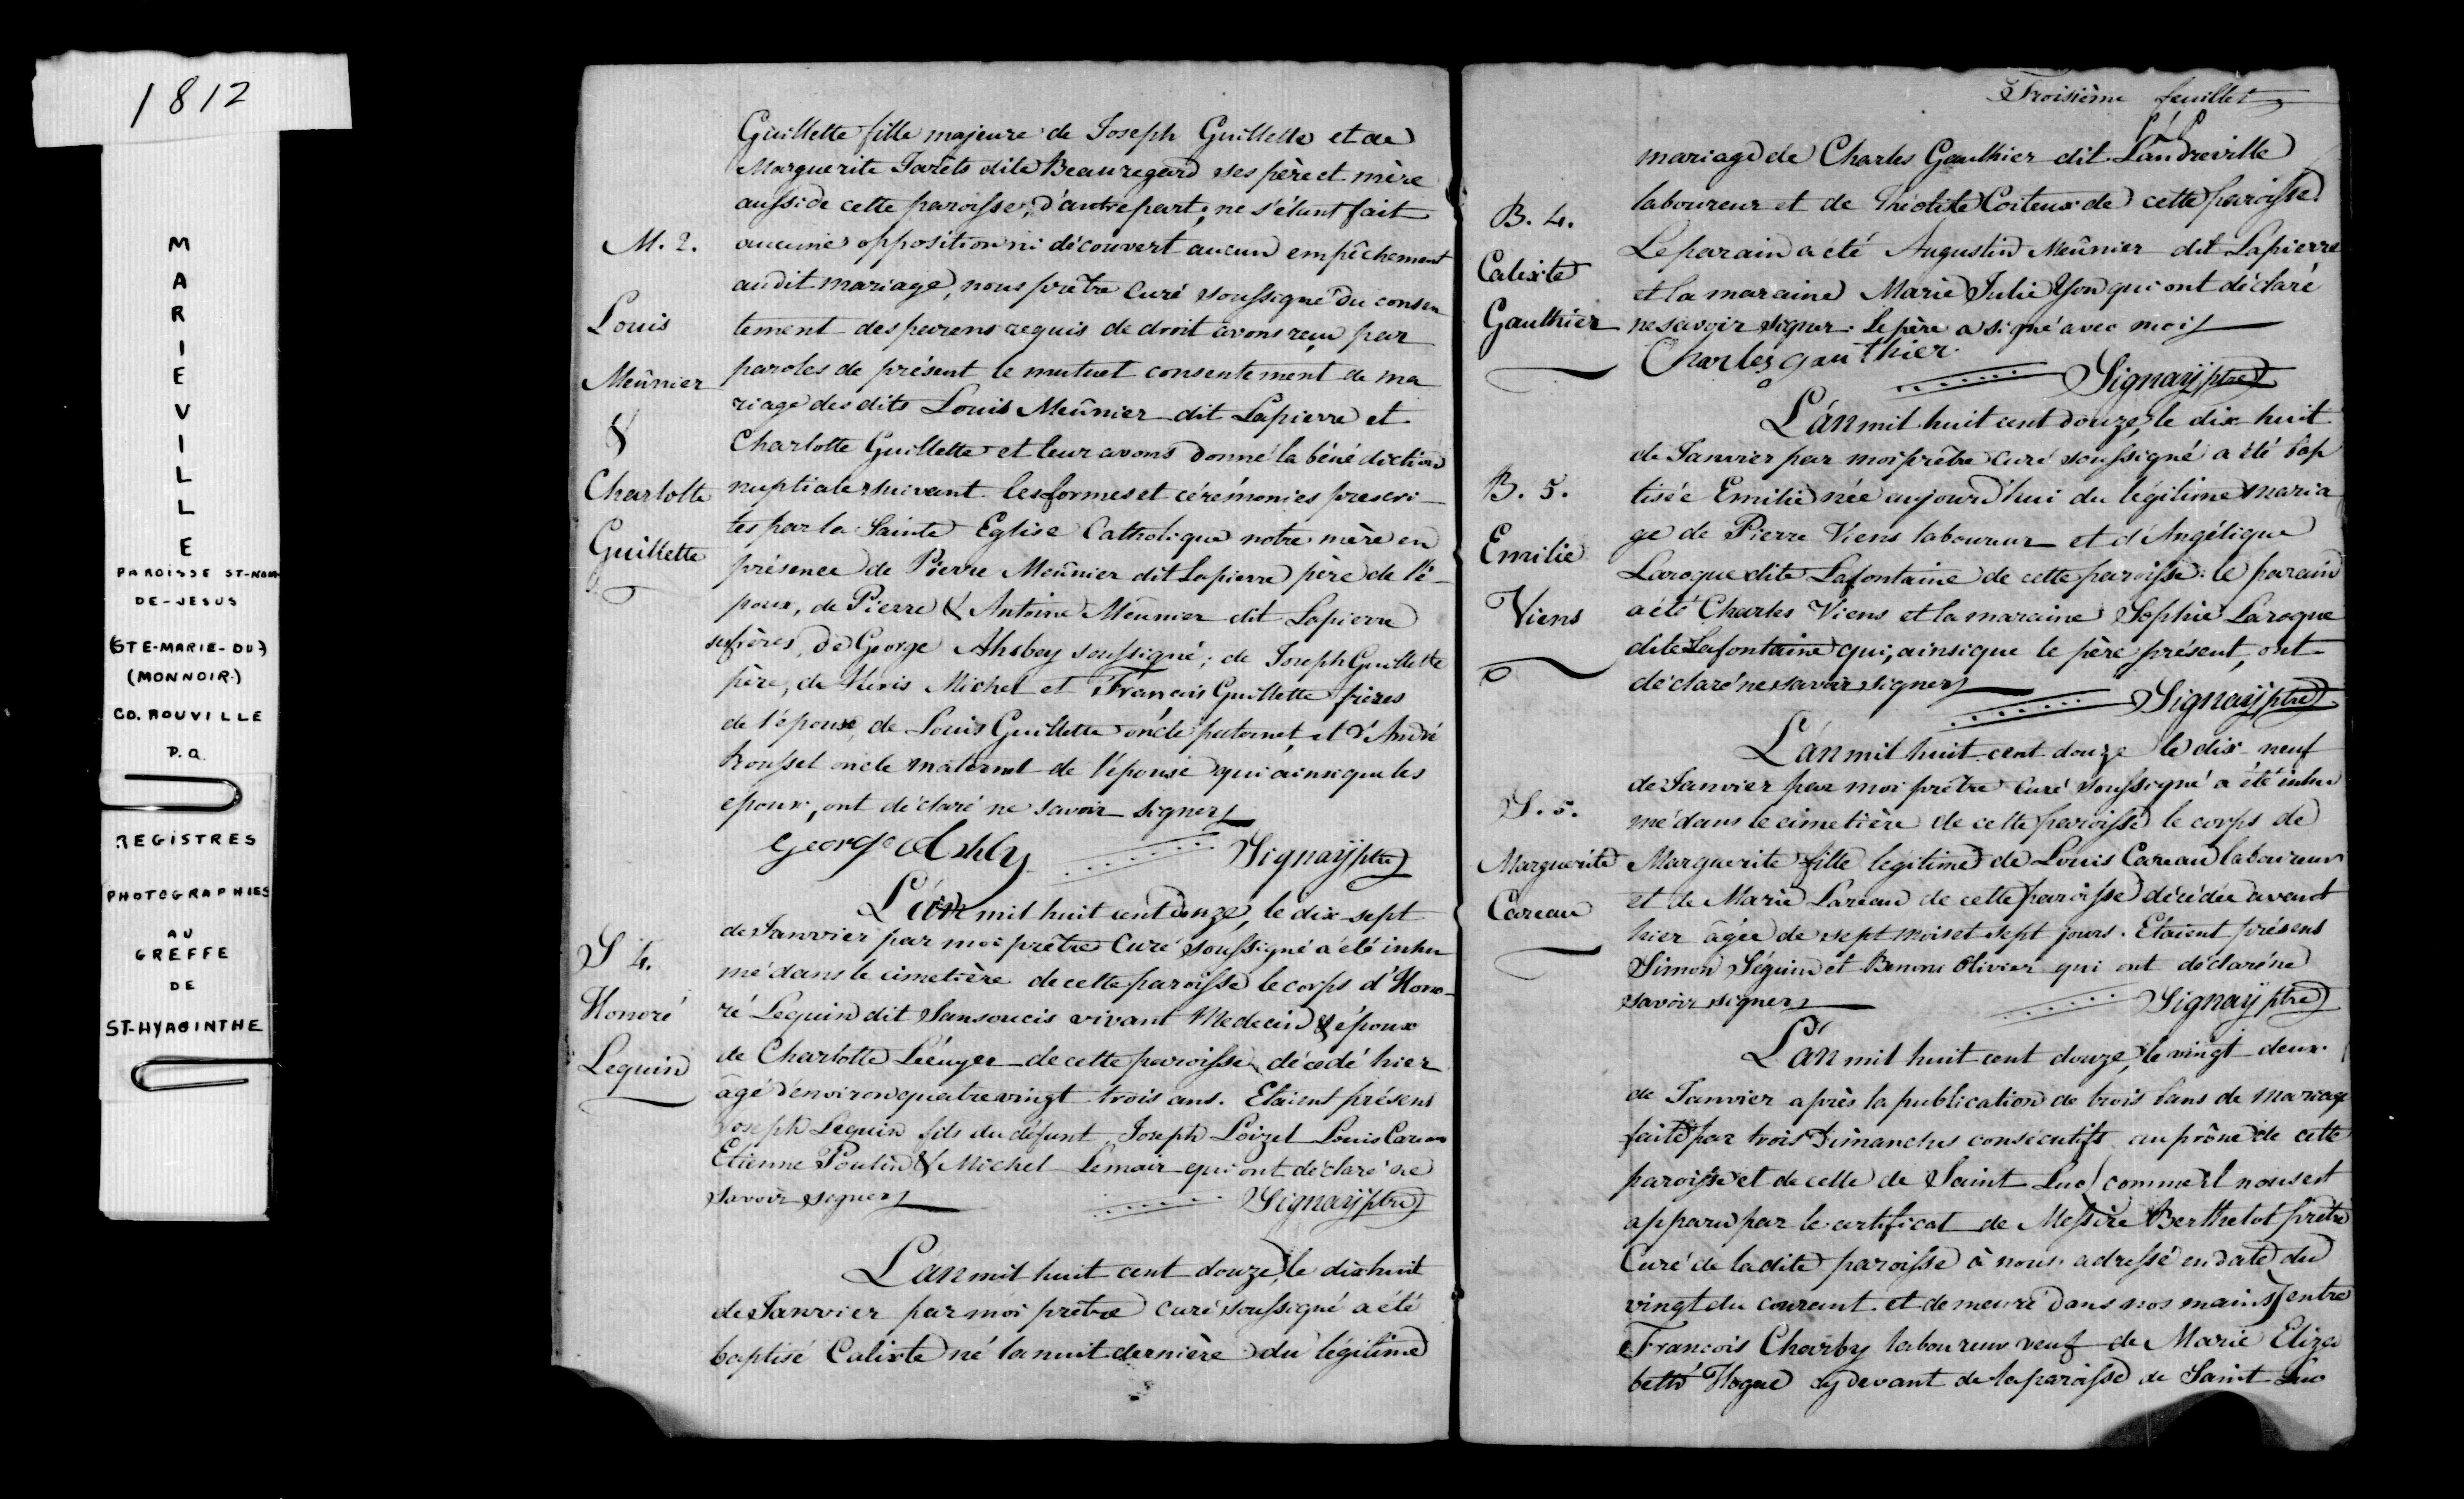 1812
M
A
R
I
E
V
I
L
L
E
PAROISSE ST-NOM-
DE-JESUS
(STE-MARIE-DU-)
(MONNOIR.)
CO. ROUVILLE
P.Q.
REGISTRES
PHOTOGRAPHIES
AU
GREFFE
DE
ST-HYACINTHE
M. 2.
Louis
Meûnier
&
Charlotte
Guillette
Guillette fille majeure de Joseph Guillette et de
Marguerite Jarêts dite Beauregard ses père et mère
aussi de cette paroisse, d'autre part; ne s'étant fait
aucune opposition ni découvert aucun empêchement
audit mariage, nous prêtre Curé soussigné du consen
tement des parens requis de droit avons reçu par
paroles de présent le mutuel consentement de ma
riage des dits Louis Meûnier dit Lapierre et
Charlotte Guillette et leur avons donné la bénédiction
nuptiale suivant les formes et cérémonies prescri-
tes par la Sainte Eglise Catholique notre mère en
présence de Pierre Meûnier dit Lapierre père de l'é-
poux, de Pierre & Antoine Meûnier dit Lapierre
ses frères, de George soussigné; de Joseph Guillette
père, de Michel et François Guillette frères
de l'épouse, de Louis Guillette oncle paternel, et d'André
Roussel oncle maternel de l'épouse qui ainsi que les
époux, ont déclaré ne savoir signer
George Signaÿ ptre
S 4.
Honoré
Lequin
L'an mil huit cent douze, le dix-sept
de Janvier par moi prêtre Curé soussigné a été inhu
mé dans le cimetière de cette paroisse le corps d'Hono-
ré Lequin dit Sansoucis vivant Medecin & époux
de Charlotte de cette paroisse, décédé hier
âgé d'environ quatre vingt trois ans. Etaient présens
Joseph Lequin fils du défunt, Joseph Loizel Louis Careau
Etienne Poulin & Michel Lemair qui ont déclaré ne
savoir signer Signaÿ ptre
L'an mil huit cent douze, le dix huit
de Janvier par moi prêtre curé soussigné a été
baptisé Calixte né la nuit dernière du légitime
Troisième feuillet
B. 4.
Calixte
Gauthier
mariage de Charles Gauthier dit Landreville
laboureur et de Théotiste Coiteux de cette paroisse.
Le parain a été Augustin Meûnier dit Lapierre
et la maraine Marie Julie Yon qui ont déclaré
ne savoir signer. Le père a signé avec moi
Charles gauthier
Signaÿ ptre
B. 5.
Emilie
Viens
L'an mil huit cent douze, le dix-huit
de Janvier par moi prêtre Curé soussigné a été bap
tisée Emilie née aujourd'hui du légitime maria
ge de Pierre Viens laboureur et d'Angélique
Laroque dite Lafontaine de cette paroisse. le parain
a été Charles Viens et la maraine Sophie Laroque
dite Lafontaine qui, ainsi que le père présent, ont
déclaré ne savoir signer Signaÿ ptre
S. 5.
Marguerite
Careau
L'an mil huit cent douze le dix-neuf
de Janvier par moi prêtre Curé soussigné a été inhu
mé dans le cimetière de cette paroisse le corps de
Marguerite fille légitime de Louis Careau laboureur
et de Marie Lareau de cette paroisse décédée avant
hier âgée de sept mois et sept jours. Etaient présens
Simon Séguin et Benoni Olivier qui ont déclaré ne
savoir signer Signaÿ ptre
L'an mil huit cent douze, le vingt deux
de Janvier après la publication de trois bans de mariage
faite par trois Dimanches consécutifs au prône de cette
paroisse et de celle de Saint Luc (comme il nous est
apparu par le certificat de Messire Berthelot prêtre
Curé de la dite paroisse à nous adressé en date du
vingt du courant et demeuré dans nos mains) entre
François Charby laboureur veuf de Marie Eliza
beth Hogue cy devant de la paroisse de Saint Luc